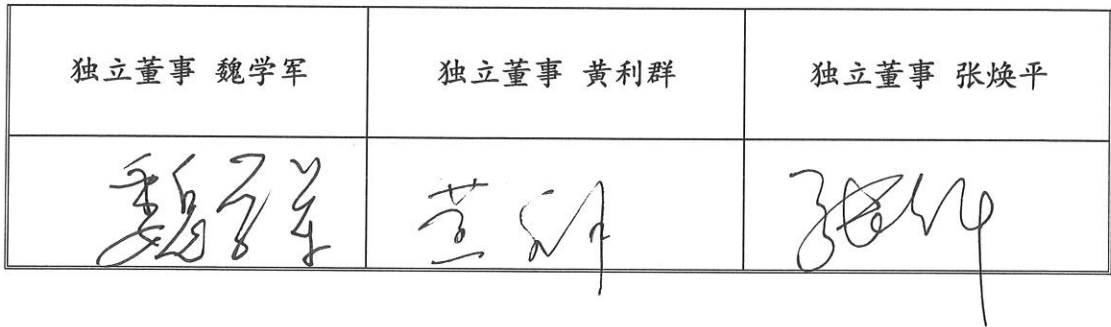 独立董事 魏学军
独立董事 黄利群
独立董事 张焕平
魏学军